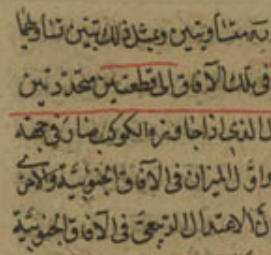 متساويتين ومثل ذلك تبين تساويهما
في تلك الآفاق الى قطعتين متحددتين
الذي اذا جاوزه الكوكب صار في جهة
واول الميزان في الآفاق الجنوبية والآخرى
ن الاعتدال الربيعي في الآفاق الجنوبية